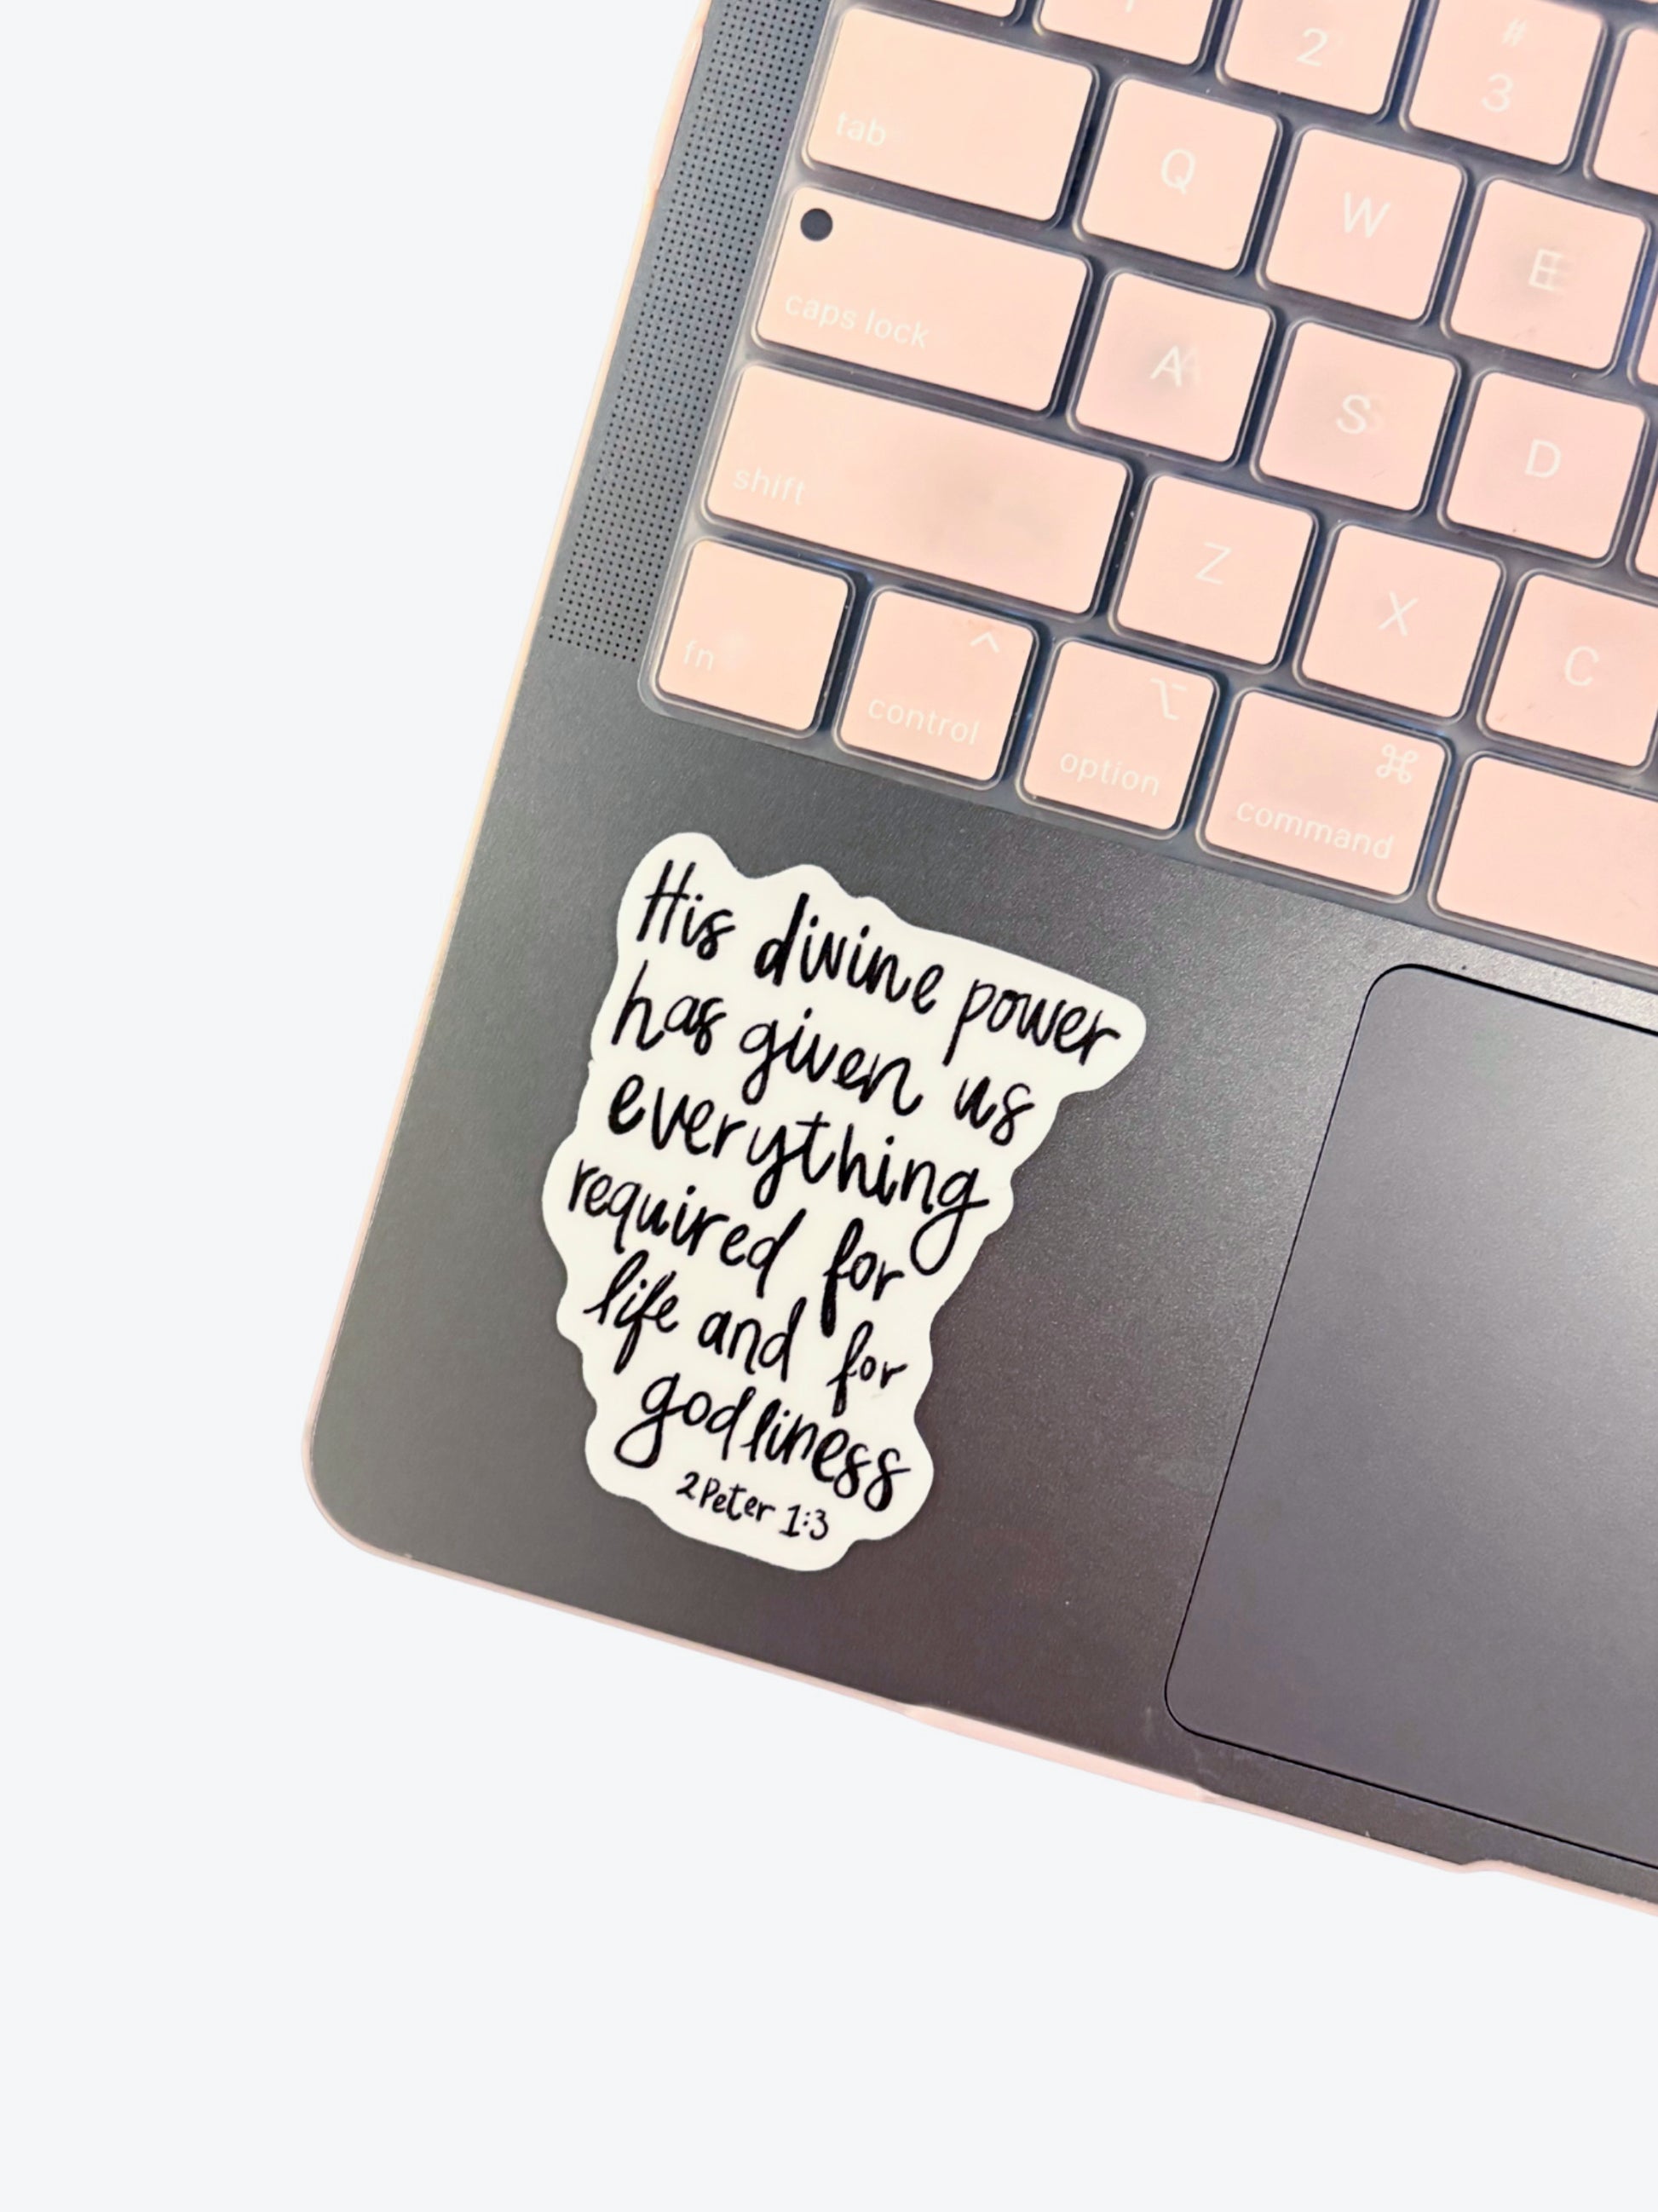 1
2
#
3
tab
Q
W
E
caps lock
A
S
D
shift
Z
X
C
fn
^
control
⌥
option
⌘
command
His divine power
has given us
everything
required for
life and for
godliness
2 Peter 1:3